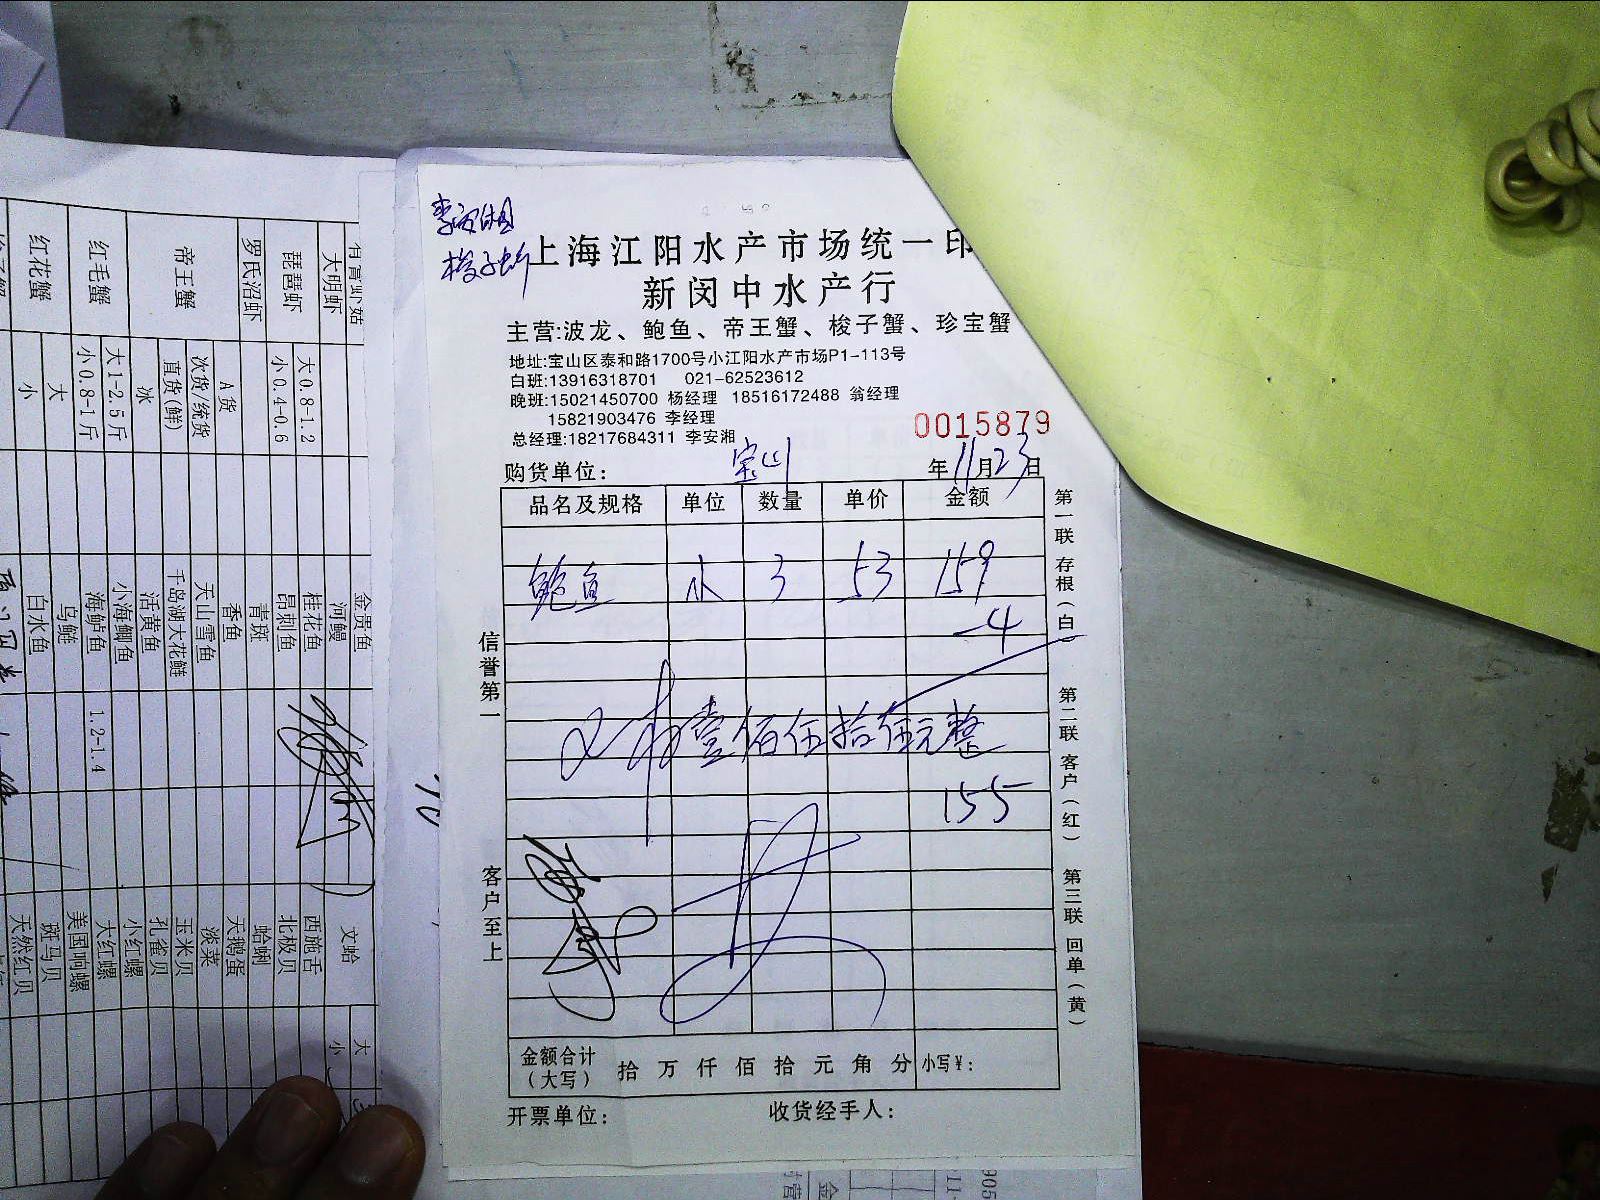 李安湘
梭子蟹
上海江阳水产市场统一印
新闵中水产行
主营:波龙、鲍鱼、帝王蟹、梭子蟹、珍宝蟹
地址:宝山区泰和路1700号小江阳水产市场P1-113号
白班:13916318701 021-62523612
晚班:15021450700 杨经理 18516172488 翁经理
15821903476 李经理
总经理:18217684311 李安湘
0015879
购货单位: 宝山 年11月23日
品名及规格 单位 数量 单价 金额
鲍鱼 小 3 53 159
-4
壹佰伍拾伍元整
155
金额合计(大写) 拾 万 仟 佰 拾 元 角 分 小写¥:
开票单位: 收货经手人:
信誉第一
客户至上
第一联 存根(白)
第二联 客户(红)
第三联 回单(黄)
大明虾
琵琶虾 大0.8-1.2
小0.4-0.6
罗氏沼虾
帝王蟹 A货
次货/统货
直货(鲜)
冰
红毛蟹 大1-2.5斤
小0.8-1斤
红花蟹 大
小
金贵鱼
河鳗
桂花鱼
昂刺鱼
青斑
香鱼
天山雪鱼
千岛湖大花鲢
活黄鱼
小海鲫鱼
海鲈鱼 1.2-1.4
乌鲢
白水鱼
文蛤 大
小
西施舌
北极贝
蛤蜊
天鹅蛋
淡菜
玉米贝
孔雀贝
小红螺
大红螺
美国响螺
斑马贝
天然红贝